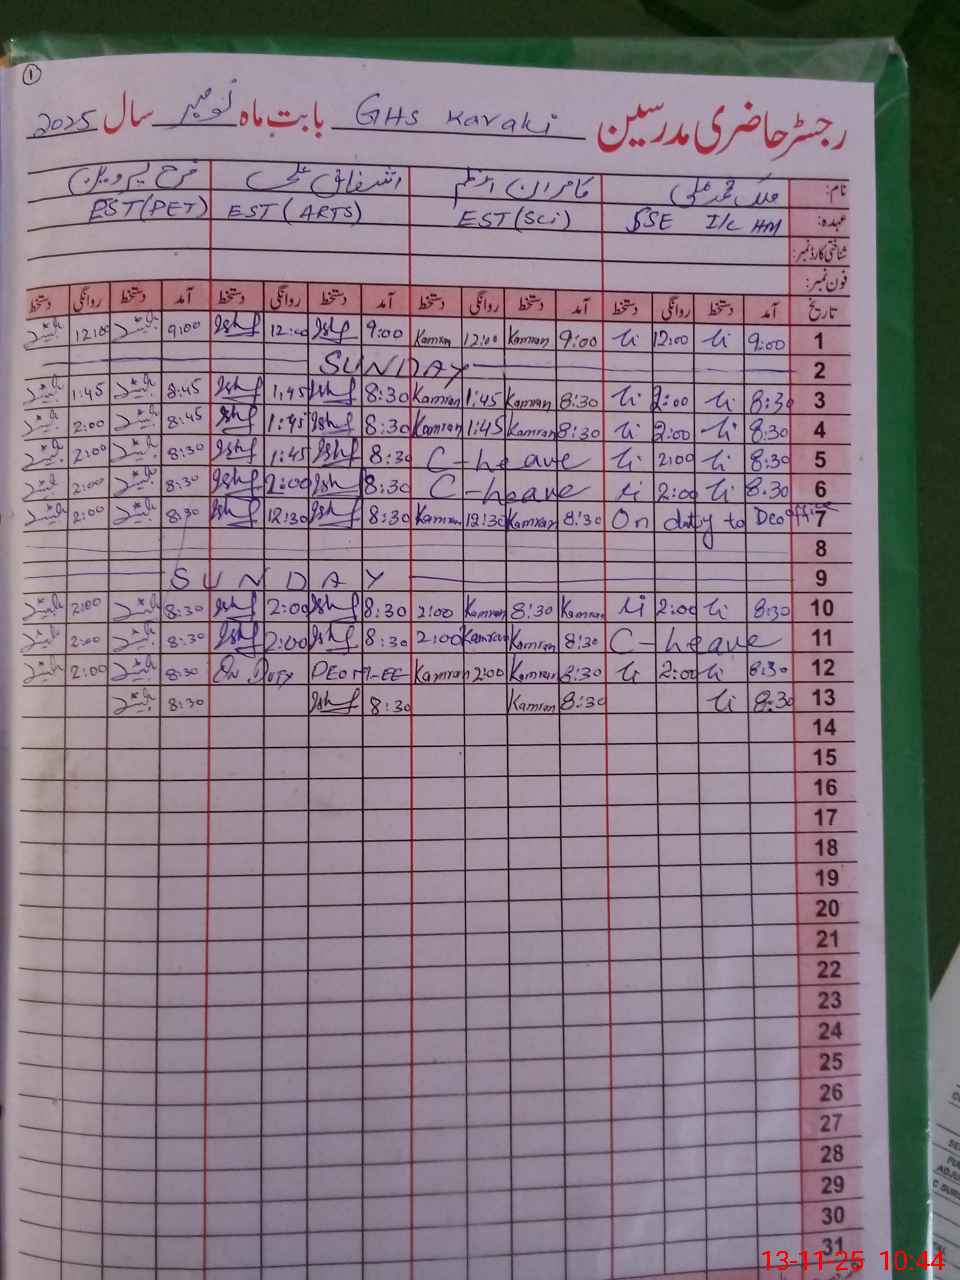 ①
رجسٹر حاضری مدرسین GHS Karaki بابت ماہ نومبر سال 2025
نام: ملک محمد علی کامران اعظم اشفاق علی فرح پروین
عہدہ: SSE I/C HM EST(Sci) EST (ARTS) EST(PET)
شناختی کارڈ نمبر:
فون نمبر:
تاریخ آمد دستخط روانگی دستخط آمد دستخط روانگی دستخط آمد دستخط روانگی دستخط آمد دستخط روانگی دستخط
1 9:00 12:00 9:00 Kamran 12:00 Kamran 9:00 12:00 9:00 12:00
2 SUNDAY
3 8:30 2:00 8:30 Kamran 1:45 Kamran 8:30 1:45 8:45 1:45
4 8:30 2:00 8:30 Kamran 1:45 Kamran 8:30 1:45 8:45 2:00
5 8:30 2:00 C-heave 8:30 1:45 8:30 2:00
6 8:30 2:00 C-heave 8:30 2:00 8:30 2:00
7 On duty to Deo office 8:30 Kamran 12:30 Kamran 8:30 12:30 8:30 2:00
8
9 SUNDAY
10 8:30 2:00 Kamran 8:30 Kamran 2:00 8:30 2:00 8:30 2:00
11 C-heave 8:30 Kamran Kamran 2:00 8:30 2:00 8:30 2:00
12 8:30 2:00 8:30 Kamran 2:00 Kamran On Duty DEO M-EE 8:30 2:00
13 8:30 8:30 Kamran 8:30 8:30
14
15
16
17
18
19
20
21
22
23
24
25
26
27
28
29
30
31
13-11-25 10:44